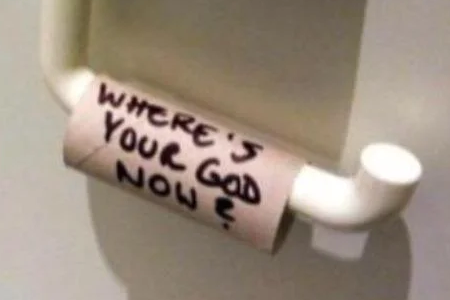 WHERE'S
YOUR GOD
NOW?